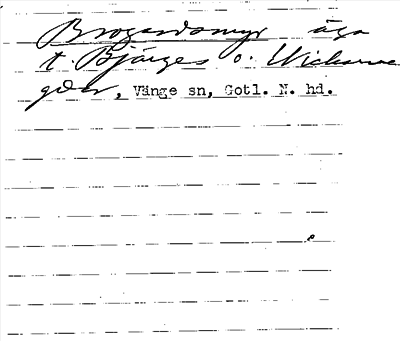 Brogardsmyr äga
t. Bjärges o. Wickarve
gdar, Vänge sn, Gotl. N. hd.